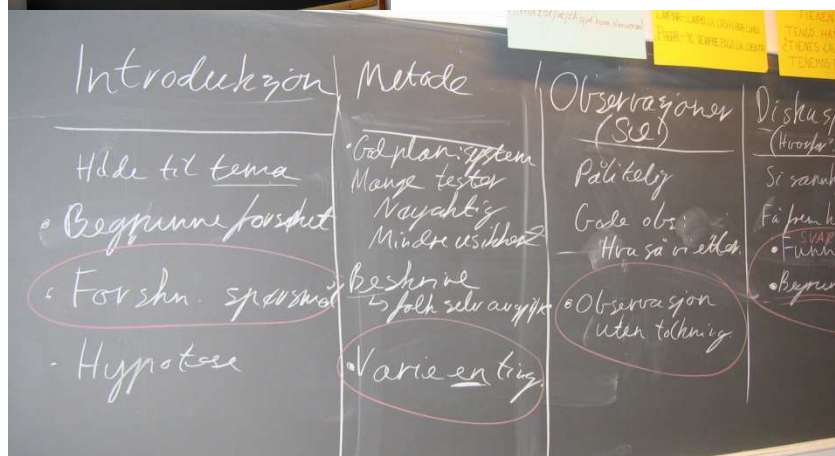 Introduksjon
Hilde til tema
• Begrunne forsøket
• Forskn. spørsmål
- Hypotese
Metode
• God plan: system
Mange tester
Nøyaktig
Mindre usikkerhet
Beskrive
↳ folk selv
• Varie en ting.
Observasjoner
(Se!)
Pålitelig
Gode obs:
Hva så vi etter.
• Observasjon
uten tolkning.
Diskusj
(Hvorfor
Si sannh
Få frem
SVAR
• Funn
• Begrun
LA CUENTA
TENGO
¿TIENES
TENEMOS